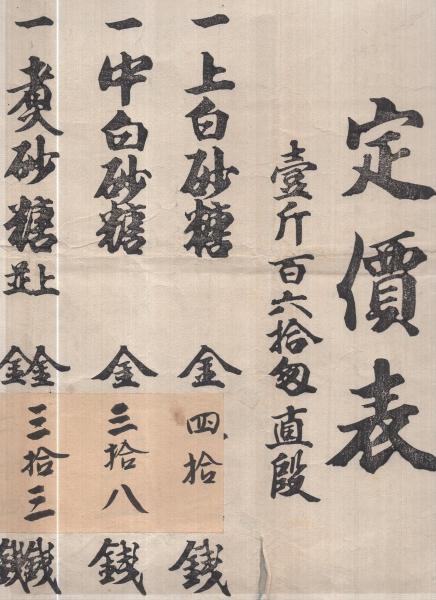 定價表
壹斤百六拾匁直段
一上白砂糖 金四拾錢
一中白砂糖 金三拾八錢
一 砂糖 上 金三拾三錢
並 金 錢